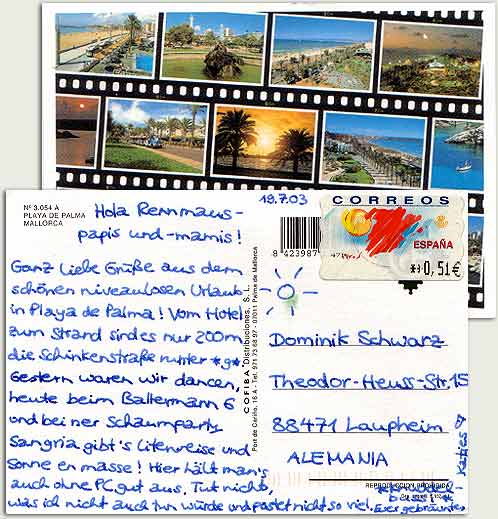 Nº 3.054 A
PLAYA DE PALMA
MALLORCA
Hola Rennmaus-
papis und -mamis!
Ganz liebe Grüße aus dem
schönen niveaulosen Urlaub
in Playa de Palma! Vom Hotel
zum Strand sind es nur 200m
die Schinkenstraße runter *g*
Gestern waren wir dancen,
heute beim Ballermann 6
und bei ner Schaumparty
Sangria gibt's literweise und
Sonne en masse! Hier hält man's
auch ohne PC gut aus. Tut nichts,
was ich nicht auch tun würde und postet nicht so viel.
COFIBA Distribuciones, S. L.
07011 Palma de Mallorca
19.7.03
8 423987
CORREOS
ESPAÑA
0,51€
Dominik Schwarz
Theodor-Heuss-Str. 15
88471 Laupheim
ALEMANIA
REPRODUCCION PROHIBIDA
Eure gebräunten